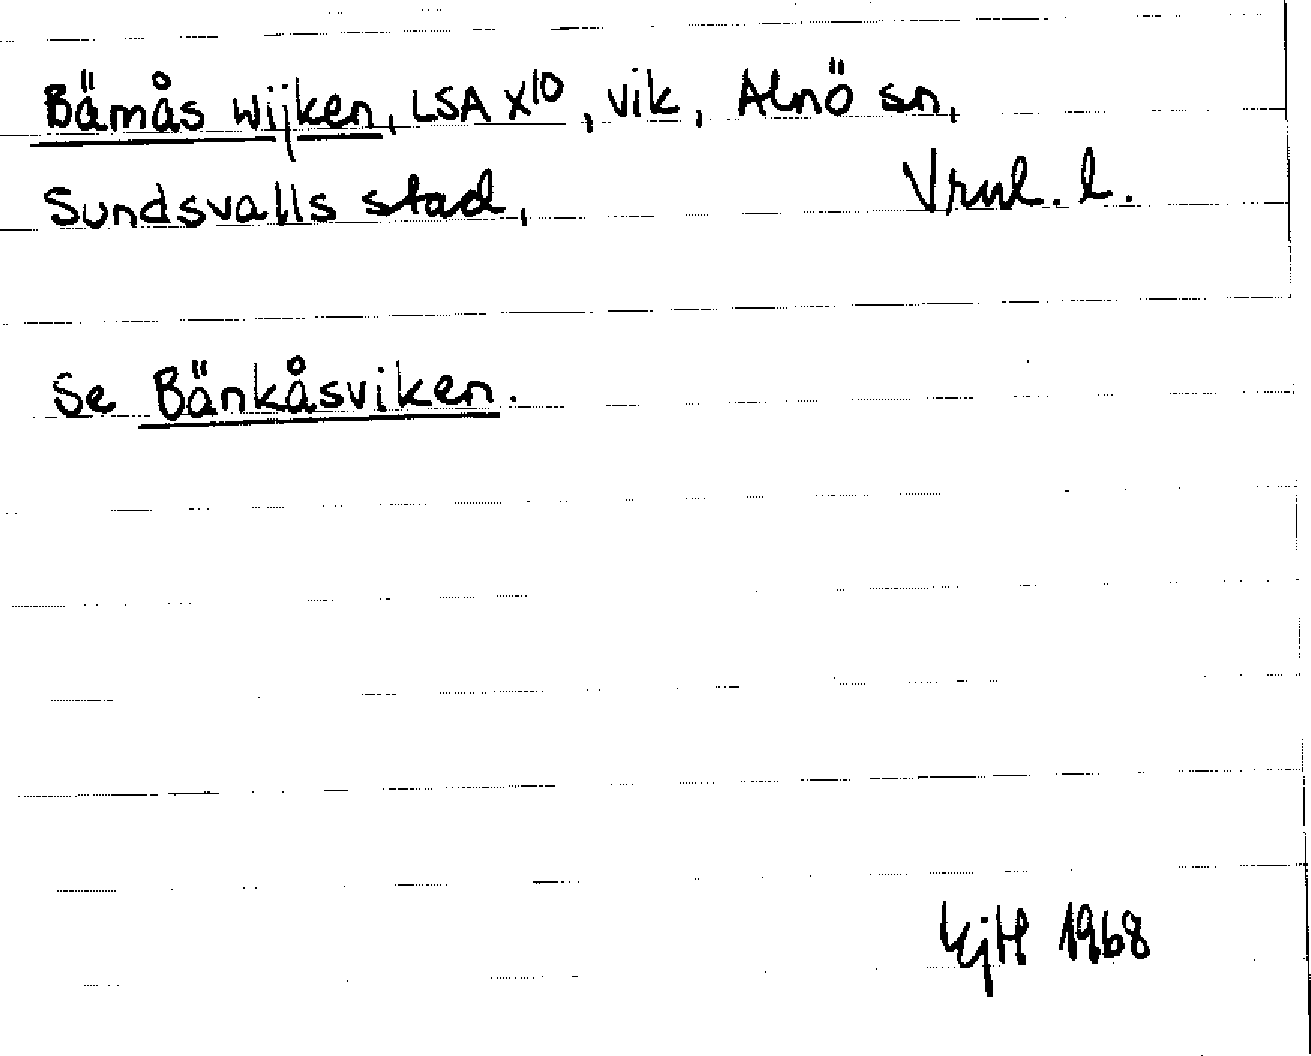 Bämås Wijken, LSA X10, vik, Alnö sn,
Sundsvalls stad,
l.
Se Bänkåsviken.
1968